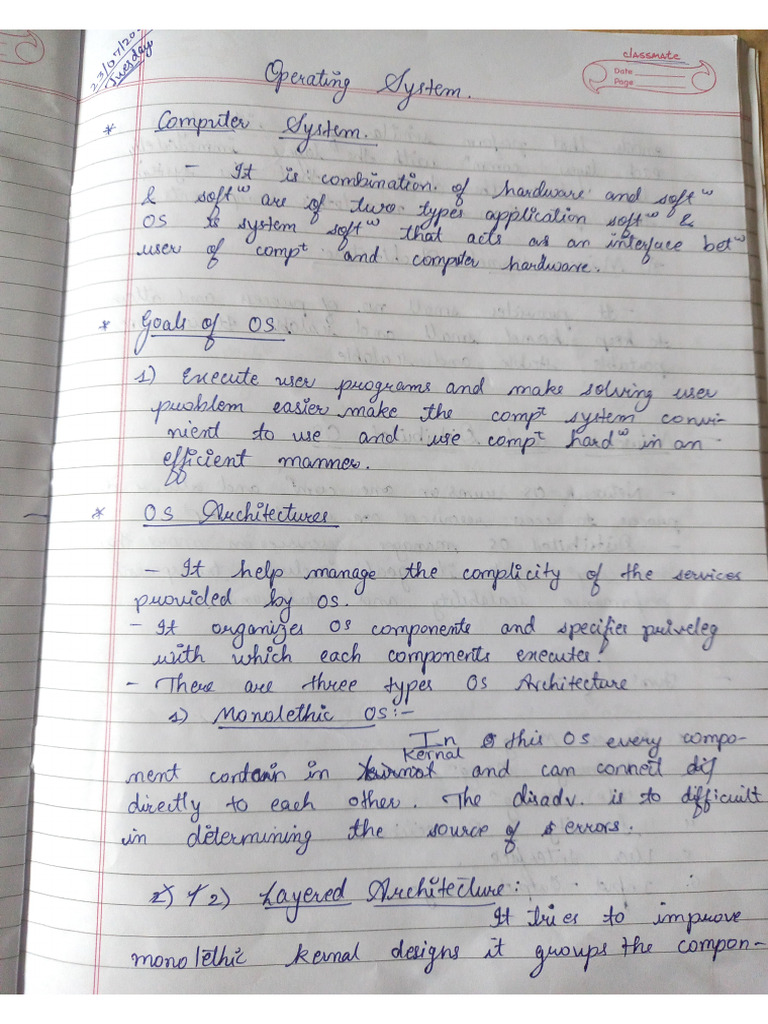 23/07/20
Tuesday
classmate
Date
Page
Operating System.
* Computer System.
- It is combination of hardware and softʷ
& softʷ are of two types application softʷ &
OS is system softʷ that acts as an interface betʷ
user of compᵗ and computer hardware.
* Goals of OS.
1) Execute user programs and make solving user
problem easier make the compᵗ system convi-
nient to use and use compᵗ hardʷ in an
efficient manner.
* OS Architectures
- It help manage the complicity of the services
provided by OS.
- It organizes OS components and specifies priveleg
with which each components executes.
- There are three types OS Architecture
1) Monolethic OS:-
In this OS every compo-
nent contain in Kernal and can connect dif
directly to each other. The disadv. is to difficult
in determining the source of errors.
2) Layered Architecture:
It tries to improve
monolethic kernal designs it groups the compon-